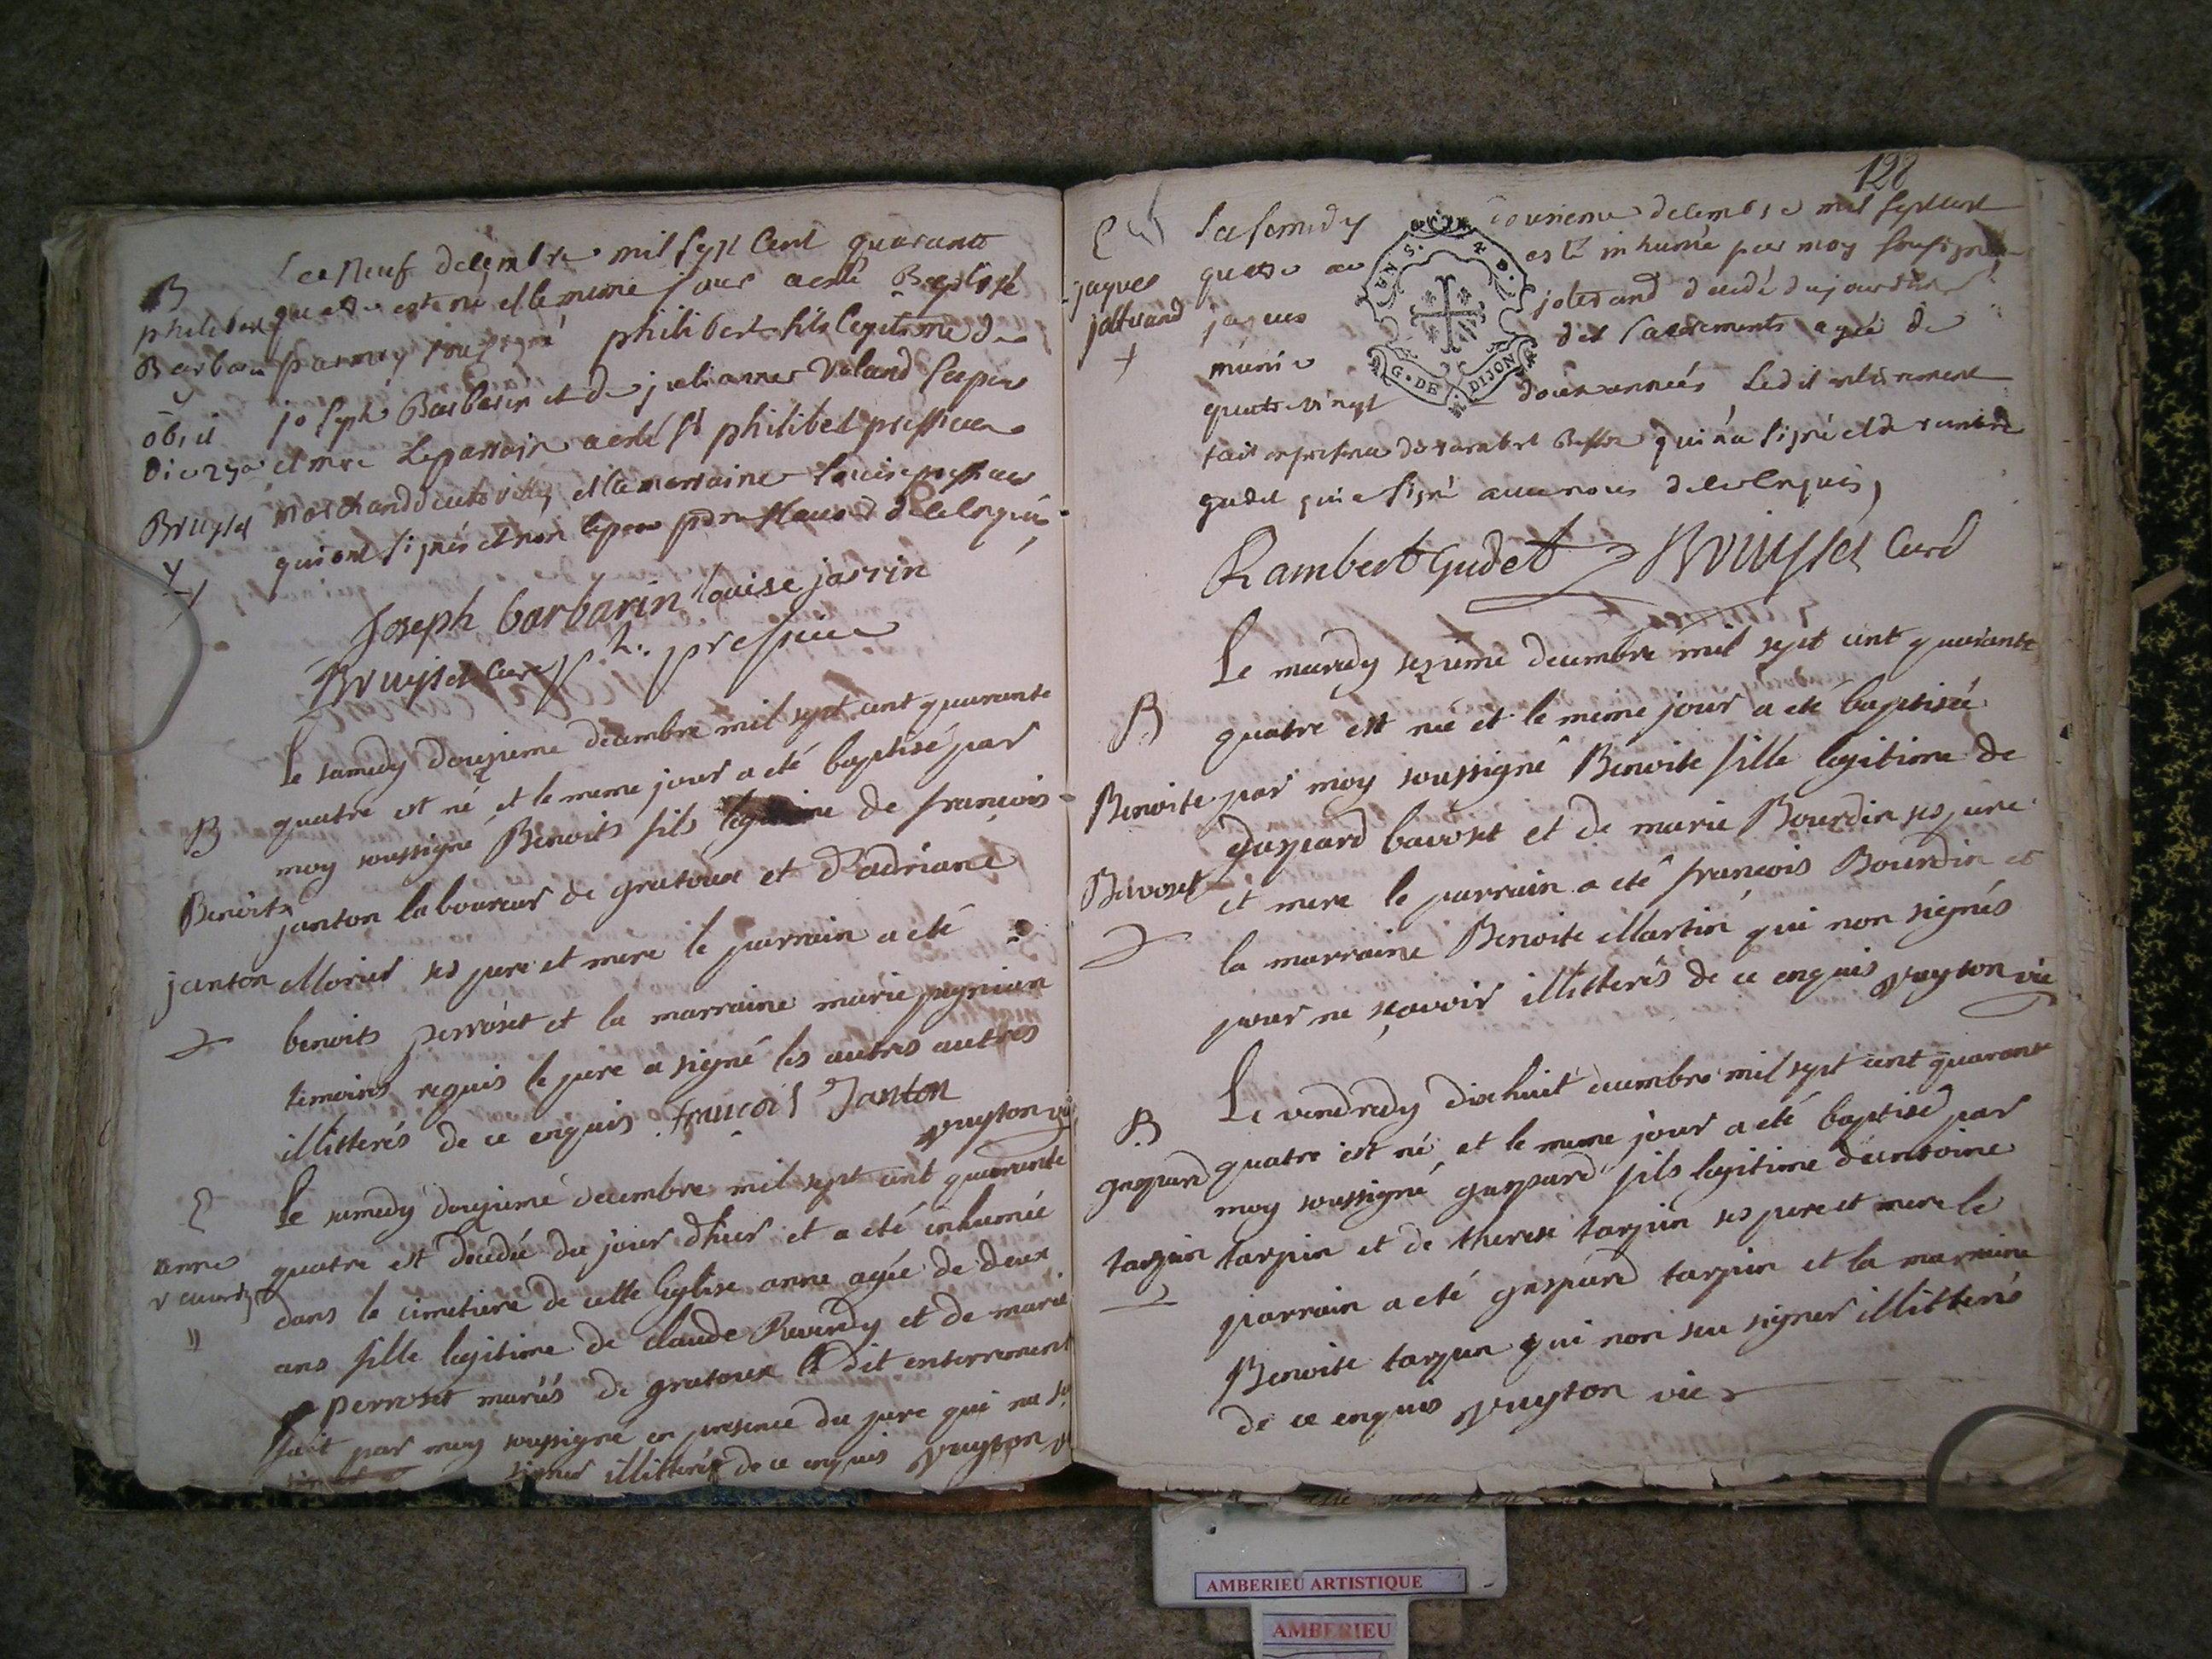 Le Neuf decembre mil sept Cent quarante
B
quatre est né et le meme jour a esté Baptisé
philibert
par moy soussigné philibert fils legitime de
Barbarin
joseph Barbarin et de julianne Valand ses pere
obiit
et mere Le parrain a esté Sr philibert
die 29a
marchand et la marraine Louise
Bruyset
qui ont signés et non le pere de ce Enquis
Joseph barbarin louise jarrin
Bruyset Curé ph.
Le samedy douzieme decembre mil sept cent quarante
quatre est né et le meme jour a été baptisé par
B
moy soussigné Benoits fils legitime de françois
Benoits
janton laboureur de gratoux et d'adriane
janton
Morier ses pere et mere le parrain a été
benoits perroset et la marraine marie
temoins requis le pere a signé les autres autres
illitterés de ce enquis françois Janton
vuyton vic
E
Le samedy douzieme decembre mil sept cent quarante
anne
quatre est decedée du jour d'hier et a été inhumée
reverdy
dans le cimetiere de cette Eglise anne agée de deux
ans fille legitime de claude Reverdy et de marie
perroset mariés de gratoux le dit enterrement
fait par moy soussigné en presence du pere qui na su
signer illitteré de ce enquis vuyton
128
E
Le samedy douzieme decembre mil sept cent
jaques
quatre a esté inhumé par moy soussigné
jolivand
jaques decedé d'aujourdhuy
+
munie des sacrements agée de
quatre vingt douze années Ledit enterrement
fait en presence de qui n'a signé et de rambert
gudet qui a signé avec nous de ce Enquis
Rambert Gudet Bruyset Curé
Le mercredy sezieme decembre mil sept cent quarante
B
quatre est née et le meme jour a eté baptisée
Benoite
par moy soussigné Benoite fille legitime de
gaspard bavoset et de marie Bourdin ses pere
Bavoset
et mere le parrain a eté françois Bourdin et
la marraine Benoite Martin qui non signés
pour ne sçavoir illitterés de ce enquis vuyton vic
Le vendredy dixhuit decembre mil sept cent quarante
B
quatre est né et le meme jour a eté baptisé par
gaspard
moy soussigné gaspard fils legitime d'antoine
tarpin
tarpin et de therese tarpin ses pere et mere le
parrain a eté gaspard tarpin et la marraine
Benoite tarpin qui non seu signer illitterés
de ce enquis vuyton vic
ENS. D.
G. DE DIJON
AMBERIEU ARTISTIQUE
AMBERIEU